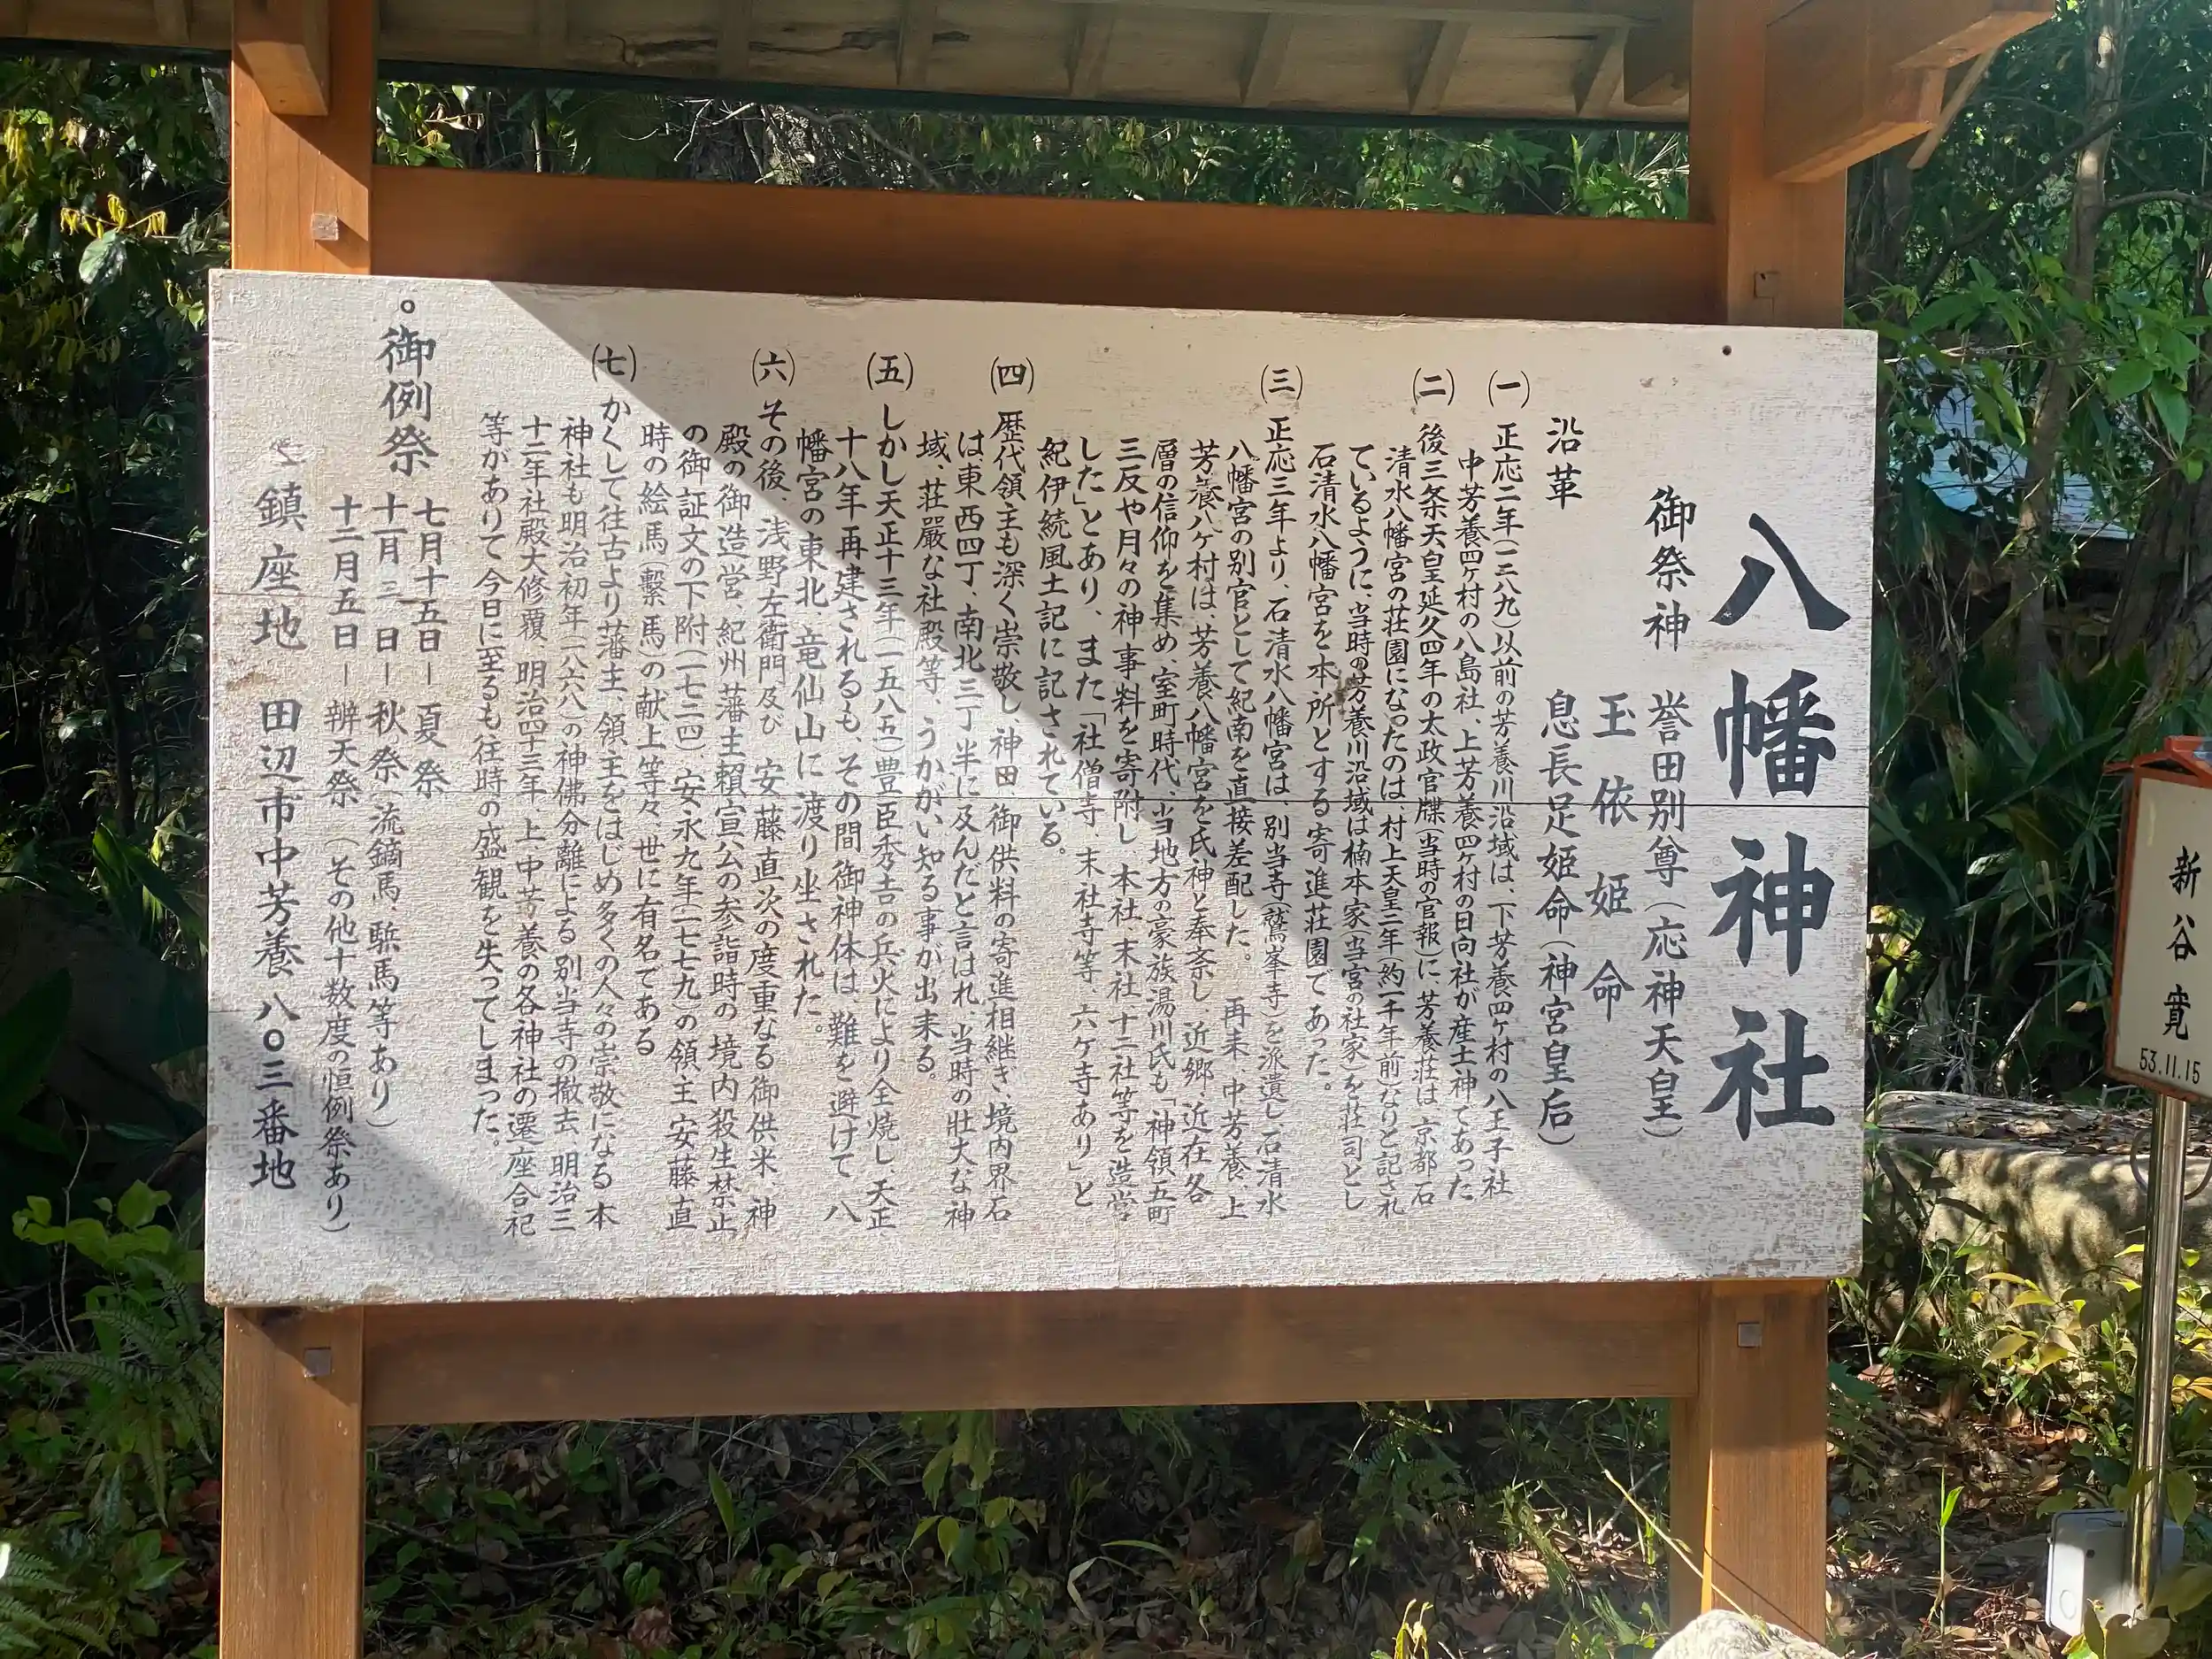 八幡神社
御祭神
誉田別尊（応神天皇）
玉依姫命
息長足姫命（神宮皇后）
沿革
㈠ 正応二年（一二八九）以前の芳養川沿域は、下芳養四ヶ村の八王子社
中芳養四ヶ村の八島社、上芳養四ヶ村の日向社が産土神であった
㈡ 後三条天皇延久四年の太政官牒（当時の官報）に、芳養荘は、京都石
清水八幡宮の荘園になったのは、村上天皇二年（約一千年前）なりと記され
ているように、当時の芳養川沿域は楠本家（当宮の社家）を荘司とし
石清水八幡宮を本所とする寄進荘園であった。
㈢ 正応三年より、石清水八幡宮は、別当寺（鷲峯寺）を派遣し石清水
八幡宮の別宮として紀南を直接差配した。 再来、中芳養、上
芳養八ヶ村は、芳養八幡宮を氏神と奉斎し、近郷、近在各
層の信仰を集め、室町時代、当地方の豪族湯川氏も「神領五町
三反や月々の神事料を寄附し、本社、末社十二社等を造営
した」とあり、また「社僧寺、末社寺等、六ヶ寺あり」と
紀伊続風土記に記されている。
㈣ 歴代領主も深く崇敬し、神田 御供料の寄進相継ぎ、境内界石
は東西四丁、南北三丁半に及んだと言はれ、当時の壮大な神
域、荘厳な社殿等、うかがい知る事が出来る。
㈤ しかし天正十三年（一五八五）豊臣秀吉の兵火により全焼し、天正
十八年再建されるも、その間御神体は、難を避けて 八
幡宮の東北、竜仙山に渡り坐された。
㈥ その後、浅野左衛門及び 安藤直次の度重なる御供米、神
殿の御造営、紀州藩主頼宣公の参詣時の境内殺生禁止
の御証文の下附（一七二四）、安永九年（一七七九）の領主安藤直
時の絵馬（繋馬）の献上等々、世に有名である
㈦ かくして往古より藩主、領主をはじめ多くの人々の崇敬になる本
神社も明治初年（一八六八）の神佛分離による別当寺の撤去、明治三
十二年社殿大修覆、明治四十三年、上中芳養の各神社の遷座合祀
等がありて今日に至るも往時の盛観を失ってしまった。
。御例祭
七月十五日－夏祭
十一月三日－秋祭（流鏑馬、駈馬等あり）
十二月五日－辨天祭 （その他十数度の恒例祭あり）
鎮座地 田辺市中芳養八〇三番地
新谷 寛
53.11.15